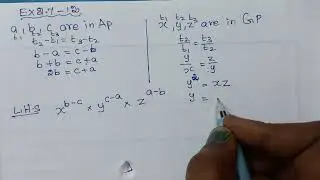 Ex 2.7 - 10
a, b, c are in AP
t₁ t₂ t₃
t₂ - t₁ = t₃ - t₂
b - a = c - b
b + b = c + a
2b = c + a
t₁ t₂ t₃
x, y, z are in GP
t₂/t₁ = t₃/t₂
y/x = z/y
y² = xz
y =
L.H.S x^(b-c) × y^(c-a) × z^(a-b)